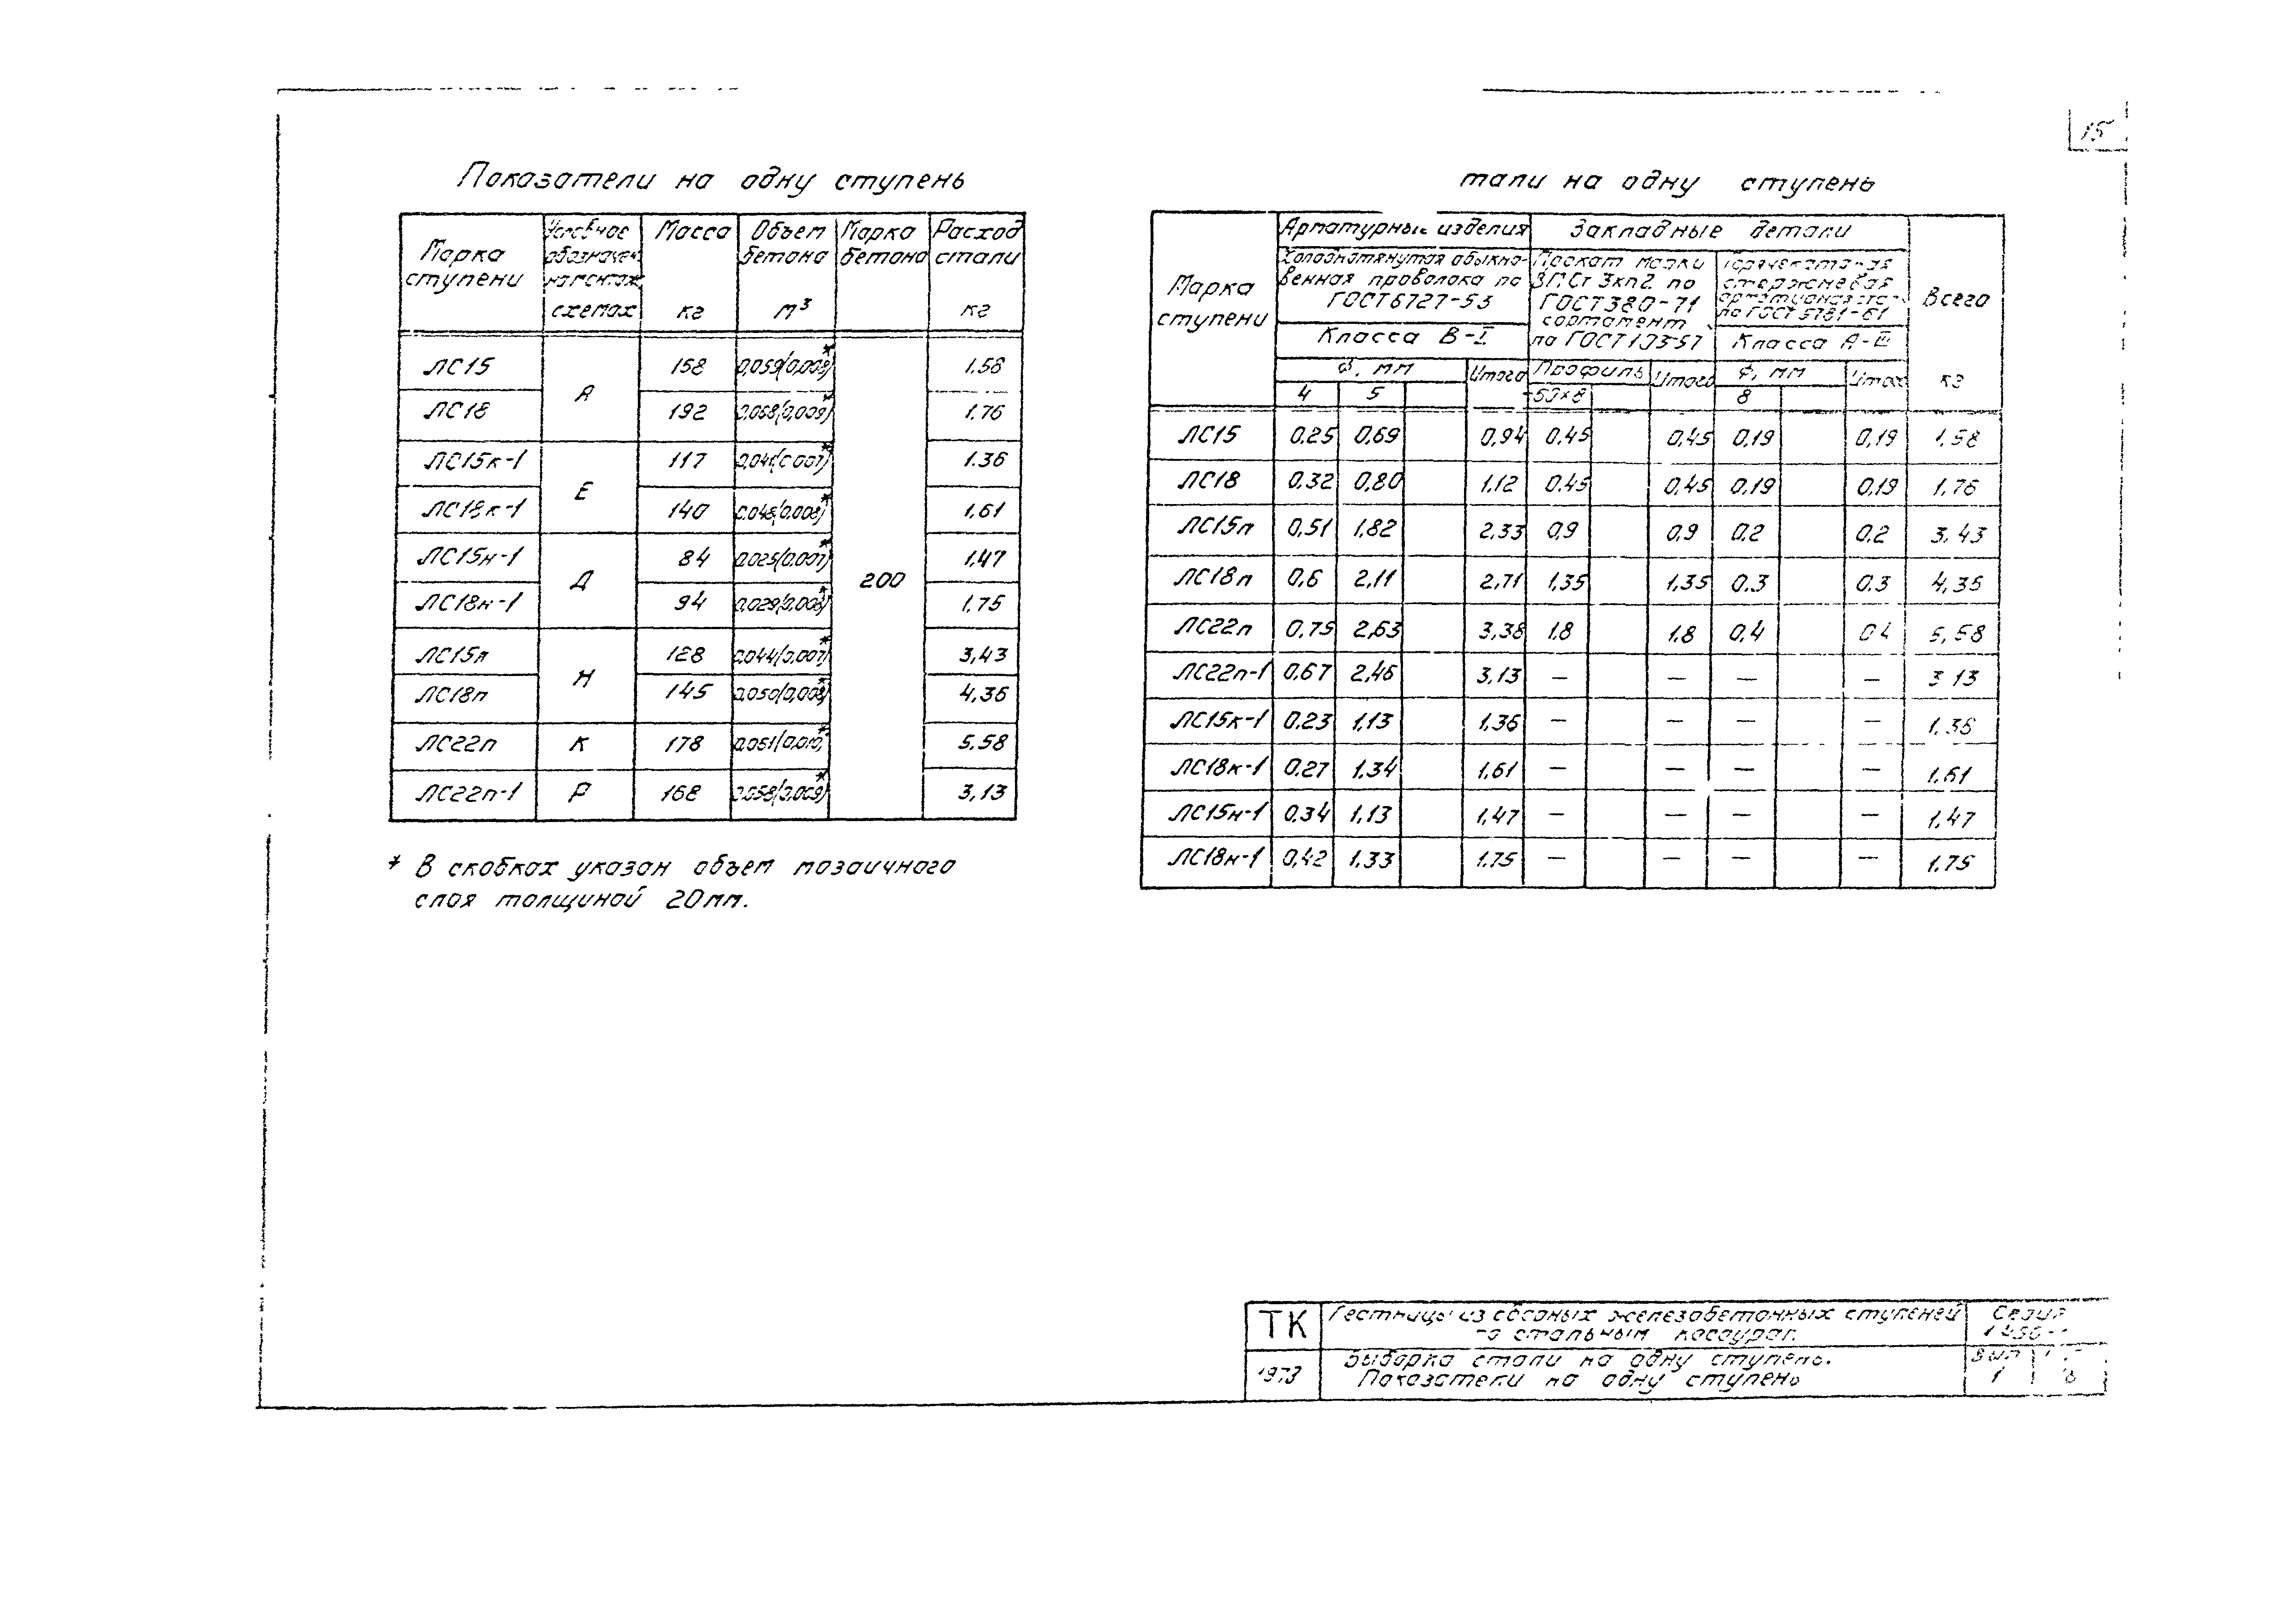 15
Показатели на одну ступень
Марка ступени | Условное обозначен. на монтаж. схемах | Масса кг | Объем бетона м³ | Марка бетона | Расход стали кг
ЛС15 | А | 158 | 0,059(0,008)* | 200 | 1.58
ЛС18 | 192 | 0,068(0,009)* | 1.76
ЛС15к-1 | Е | 117 | 0,041(0,007)* | 1.36
ЛС18к-1 | 140 | 0,048(0,008)* | 1,61
ЛС15н-1 | Д | 84 | 0,025(0,007)* | 1,47
ЛС18н-1 | 94 | 0,029(0,008)* | 1,75
ЛС15п | Н | 128 | 0,044(0,007)* | 3,43
ЛС18п | 145 | 0,050(0,008)* | 4,36
ЛС22п | К | 178 | 0,061(0,010)* | 5,58
ЛС22п-1 | Р | 168 | 0,058(0,009)* | 3,13
* В скобках указан объем мозаичного
слоя толщиной 20мм.
тали на одну ступень
Марка ступени | Арматурные изделия | Закладные детали | Всего кг
Холоднотянутая обыкно-
венная проволока по
ГОСТ 6727-53
Класса В-I
Прокат марки
ВМСт 3кп2 по
ГОСТ 380-71
сортамент
по ГОСТ 103-57
Горячекатаная
стержневая
арматурная ста-
по ГОСТ 5781-61
Класса А-III
Ф, мм | Итого | Профиль | Итого | Ф, мм | Итог
4 | 5 | -50×8 | 8
ЛС15 | 0,25 | 0,69 | 0,94 | 0,45 | 0,45 | 0,19 | 0,19 | 1,58
ЛС18 | 0.32 | 0,80 | 1,12 | 0,45 | 0,45 | 0,19 | 0,19 | 1,76
ЛС15п | 0,51 | 1,82 | 2,33 | 0,9 | 0,9 | 0,2 | 0,2 | 3,43
ЛС18п | 0,6 | 2,11 | 2,71 | 1,35 | 1,35 | 0.3 | 0.3 | 4,36
ЛС22п | 0,75 | 2,63 | 3,38 | 1.8 | 1.8 | 0,4 | 0 4 | 5,58
ЛС22п-1 | 0,67 | 2,46 | 3,13 | — | — | — | — | 3 13
ЛС15к-1 | 0.23 | 1,13 | 1,36 | — | — | — | — | 1,36
ЛС18к-1 | 0,27 | 1,34 | 1,61 | — | — | — | — | 1,61
ЛС15н-1 | 0.34 | 1,13 | 1,47 | — | — | — | — | 1,47
ЛС18н-1 | 0,42 | 1.33 | 1.75 | — | — | — | — | 1.75
ТК | Лестницы из сборных железобетонных ступеней | Серия
по стальным косоурам.
1973 | Выборка стали на одну ступень. | Вып
Показатели на одну ступень | 1